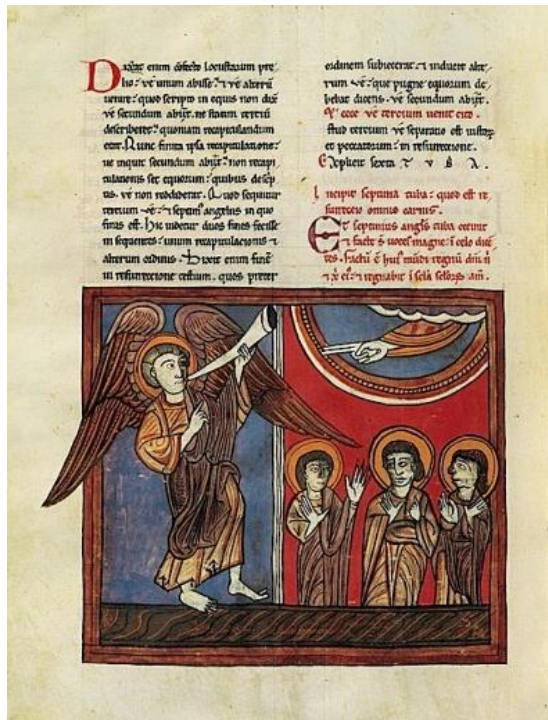 Dixerat enim confecto locustarum pre
lio: ve unum abisse: ⁊ ve alterū
uenire: quod scripto in equis non dix̄
ve secundum abijt. ne statim terciū
describeret: quoniam recapitulandum
erat. Nunc finita ipsa recapitulatione:
ue inquit secundum abijt. non recapi
tulationis set equorum: quibus descͥp
tis. ve non reddiderat. Quod sequitur
tercium ve: ⁊ septimꝰ angelus in quo
finis est. hic uidetur duos fines fecisse
in sequentes: unum recapitulacionis ⁊
alterum ordinis. Dixit enim
in resurrectione. quos preter
ordinem subiecerat: ⁊ inducit alte
rum ve: que pugne equorum de
bebat dicens. ve secundum abijt.
⁊ ecce ve tercium uenit cito.
Istud tercium ve separatio est iustoꝝ
et peccatorum: in resurrectione.
Explicit sexta T V B A.
Incipit septima tuba: quod est re
surrectio omnis carnis.
Et septimus angl̄s tuba cecinit
⁊ facte s̄ uoces magne: ī celo dicē
tes. factū ē huiꝰ mūdi regnū dn̄i n̄
⁊ x̄p̄i eiꝰ: ⁊ regnabit ī sc̄la sc̄loꝝ am̄.